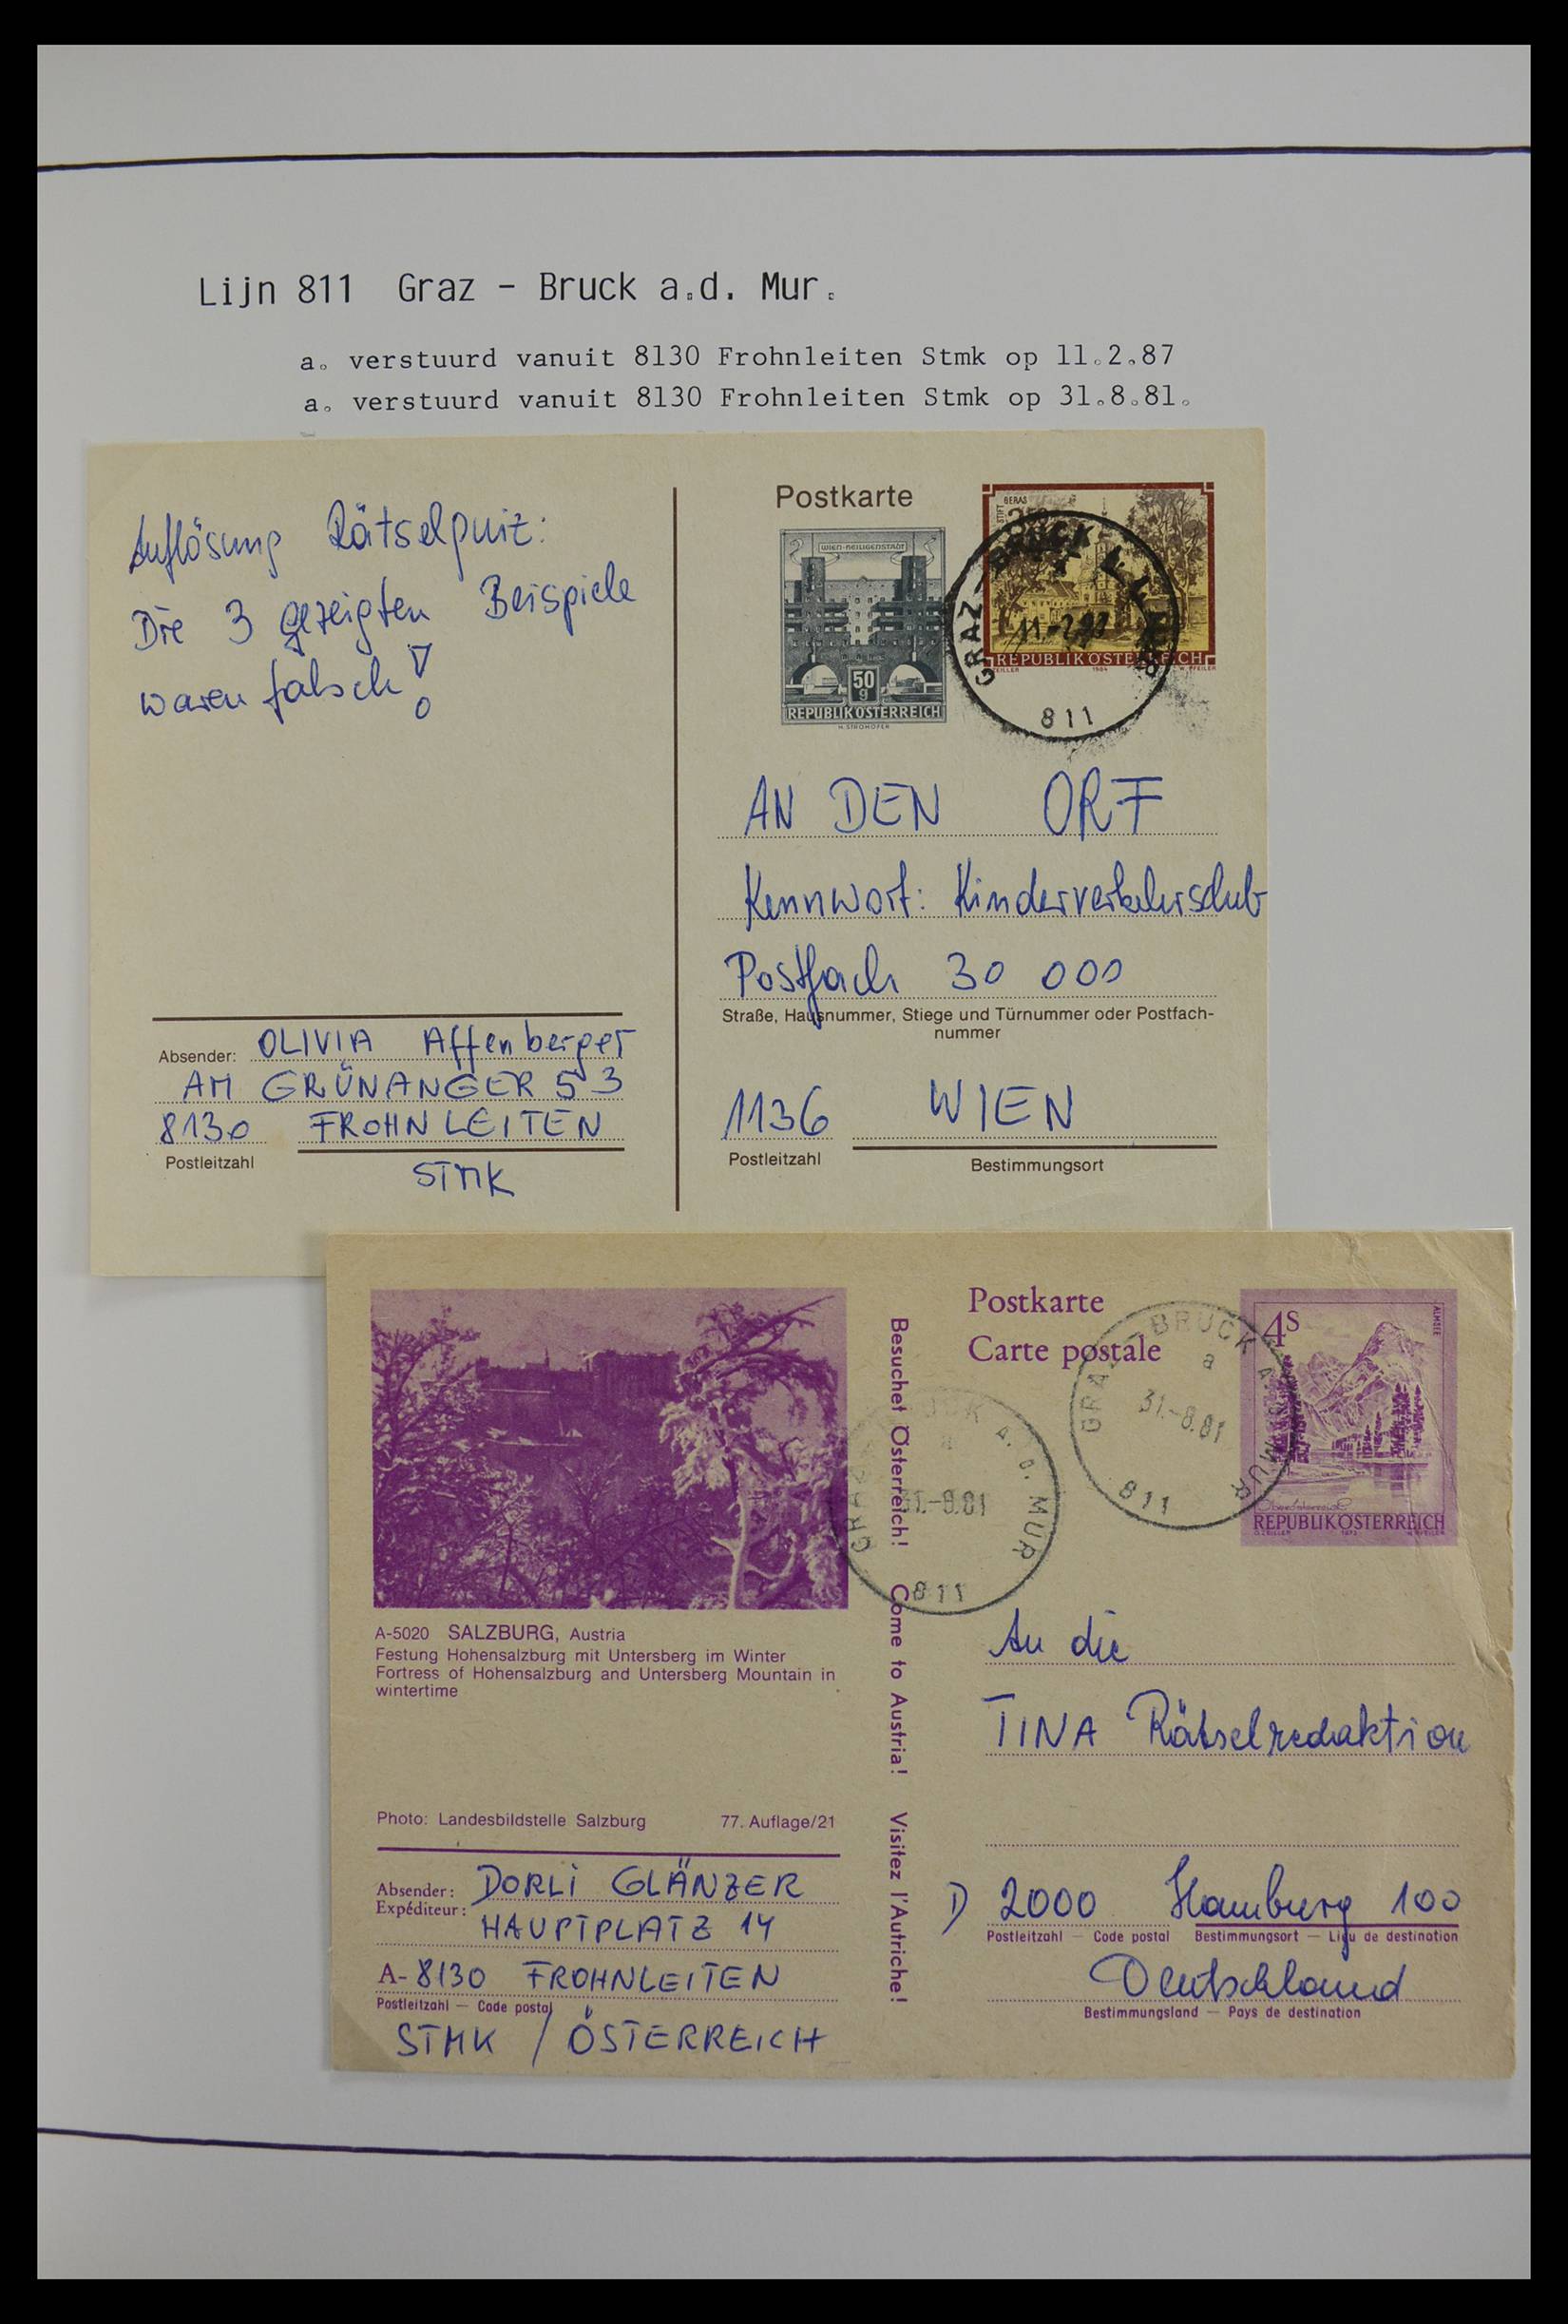 Lijn 811 Graz - Bruck a.d. Mur.
a. verstuurd vanuit 8130 Frohnleiten Stmk op 11.2.87
a. verstuurd vanuit 8130 Frohnleiten Stmk op 31.8.81.
Auflösung Rätselquiz:
Die 3 gezeigten Beispiele
waren falsch!
Absender: OLIVIA Affenberger
AM GRÜNANGER 53
8130 FROHNLEITEN
Postleitzahl
STMK
Postkarte
WIEN-HEILIGENSTADT
50
g
REPUBLIK ÖSTERREICH
H. STROHOFER
STIFT GERAS
REPUBLIK ÖSTERREICH
ZEILLER 1984 W. PFEILER
GRAZ-BRUCK
811
AN DEN ORF
Kennwort: Kinderverkehrsclub
Postfach 30 000
Straße, Hausnummer, Stiege und Türnummer oder Postfach-
nummer
1136 WIEN
Postleitzahl Bestimmungsort
A-5020 SALZBURG, Austria
Festung Hohensalzburg mit Untersberg im Winter
Fortress of Hohensalzburg and Untersberg Mountain in
wintertime
Photo: Landesbildstelle Salzburg 77. Auflage/21
Absender: DORLI GLÄNZER
Expéditeur:
HAUPTPLATZ 14
A-8130 FROHNLEITEN
Postleitzahl — Code postal
STMK / ÖSTERREICH
Besuchet Österreich! Come to Austria! Visitez l'Autriche!
Postkarte
Carte postale
4S
ALMSEE
REPUBLIK ÖSTERREICH
GRAZ BRUCK A. D. MUR
a
31.-8.81
811
GRAZ BRUCK A. D. MUR
31.-8.81
811
An die
TINA Rätselredaktion
D 2000 Hamburg 100
Postleitzahl — Code postal Bestimmungsort — Lieu de destination
Deutschland
Bestimmungsland — Pays de destination